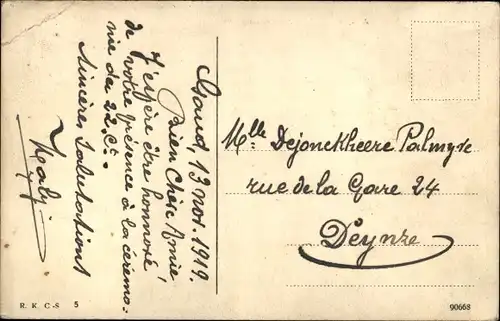 Gand, 13 nov. 1919.
Bien Chère Amie
J'espère être honnoré
de votre présence à la cérémo-
nie du 22 Ct.
Sincères Salutations
Mlle Dejonckheere Palmyre
rue de la Gare 24
Deynze
R. K. C.-S 5
90668